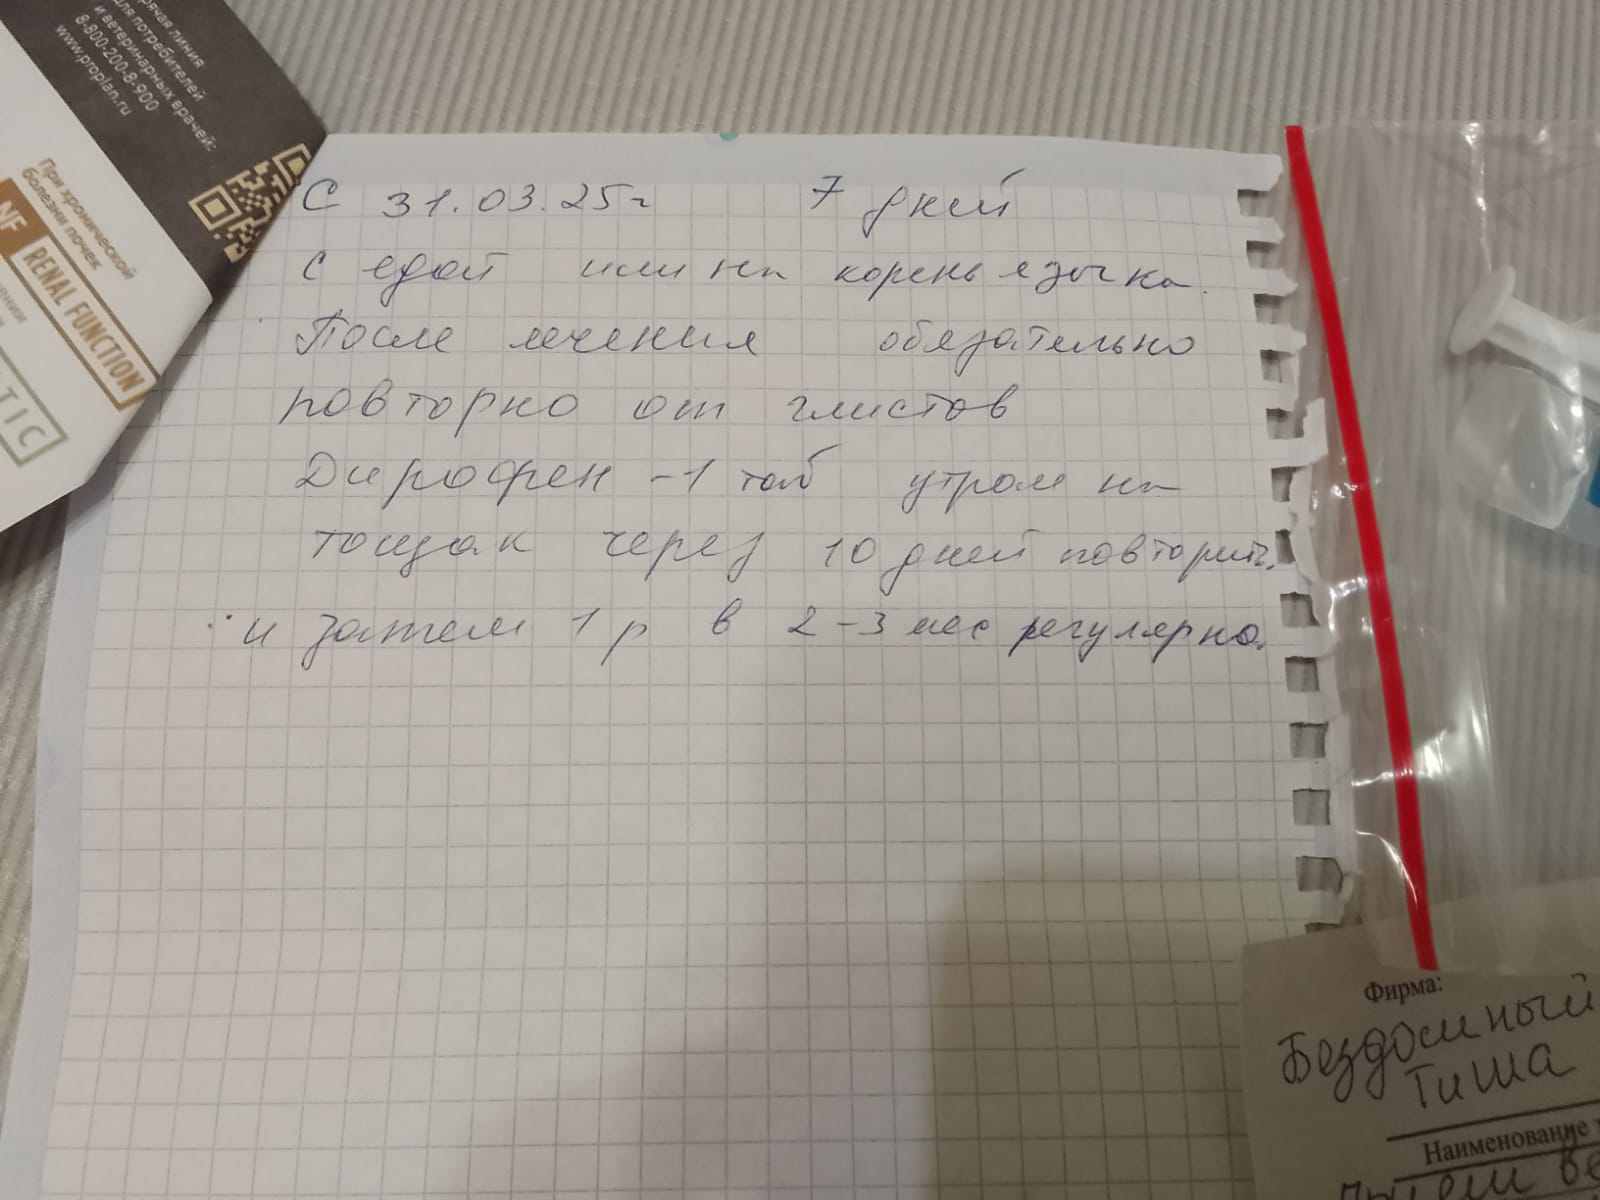 рячая линия
для потребителей
и ветеринарных врачей:
8-800-200-8-900
www.proplan.ru
При хронической
болезни почек
NF
RENAL FUNCTION
TIC
С 31.03.25г 7 дней
с едой или на корень язычка.
После лечения обязательно
повторно от глистов
Дирофен -1 таб утром на
тощак через 10 дней повторить.
и затем 1 р в 2-3 мес регулярно.
Фирма:
Бездомный
Тиша
Наименование